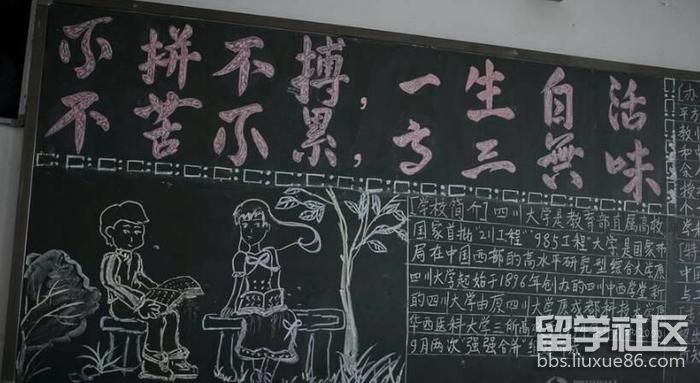 不拼不搏，一生白活
不苦不累，高三無味
[学校简介]四川大学是教育部直属高校
国家首批"211工程""985工程"大学是国家布
局在中国西部的高水平研究型综合大学原
四川大学起始于1896年创办的四川中西学堂新
的四川大学由原四川大学原成都科技大
华西医科大学三所高
9月两次"强强合并"组
(办
平方
教
和
[特
中
留学社区
bbs.liuxue86.com